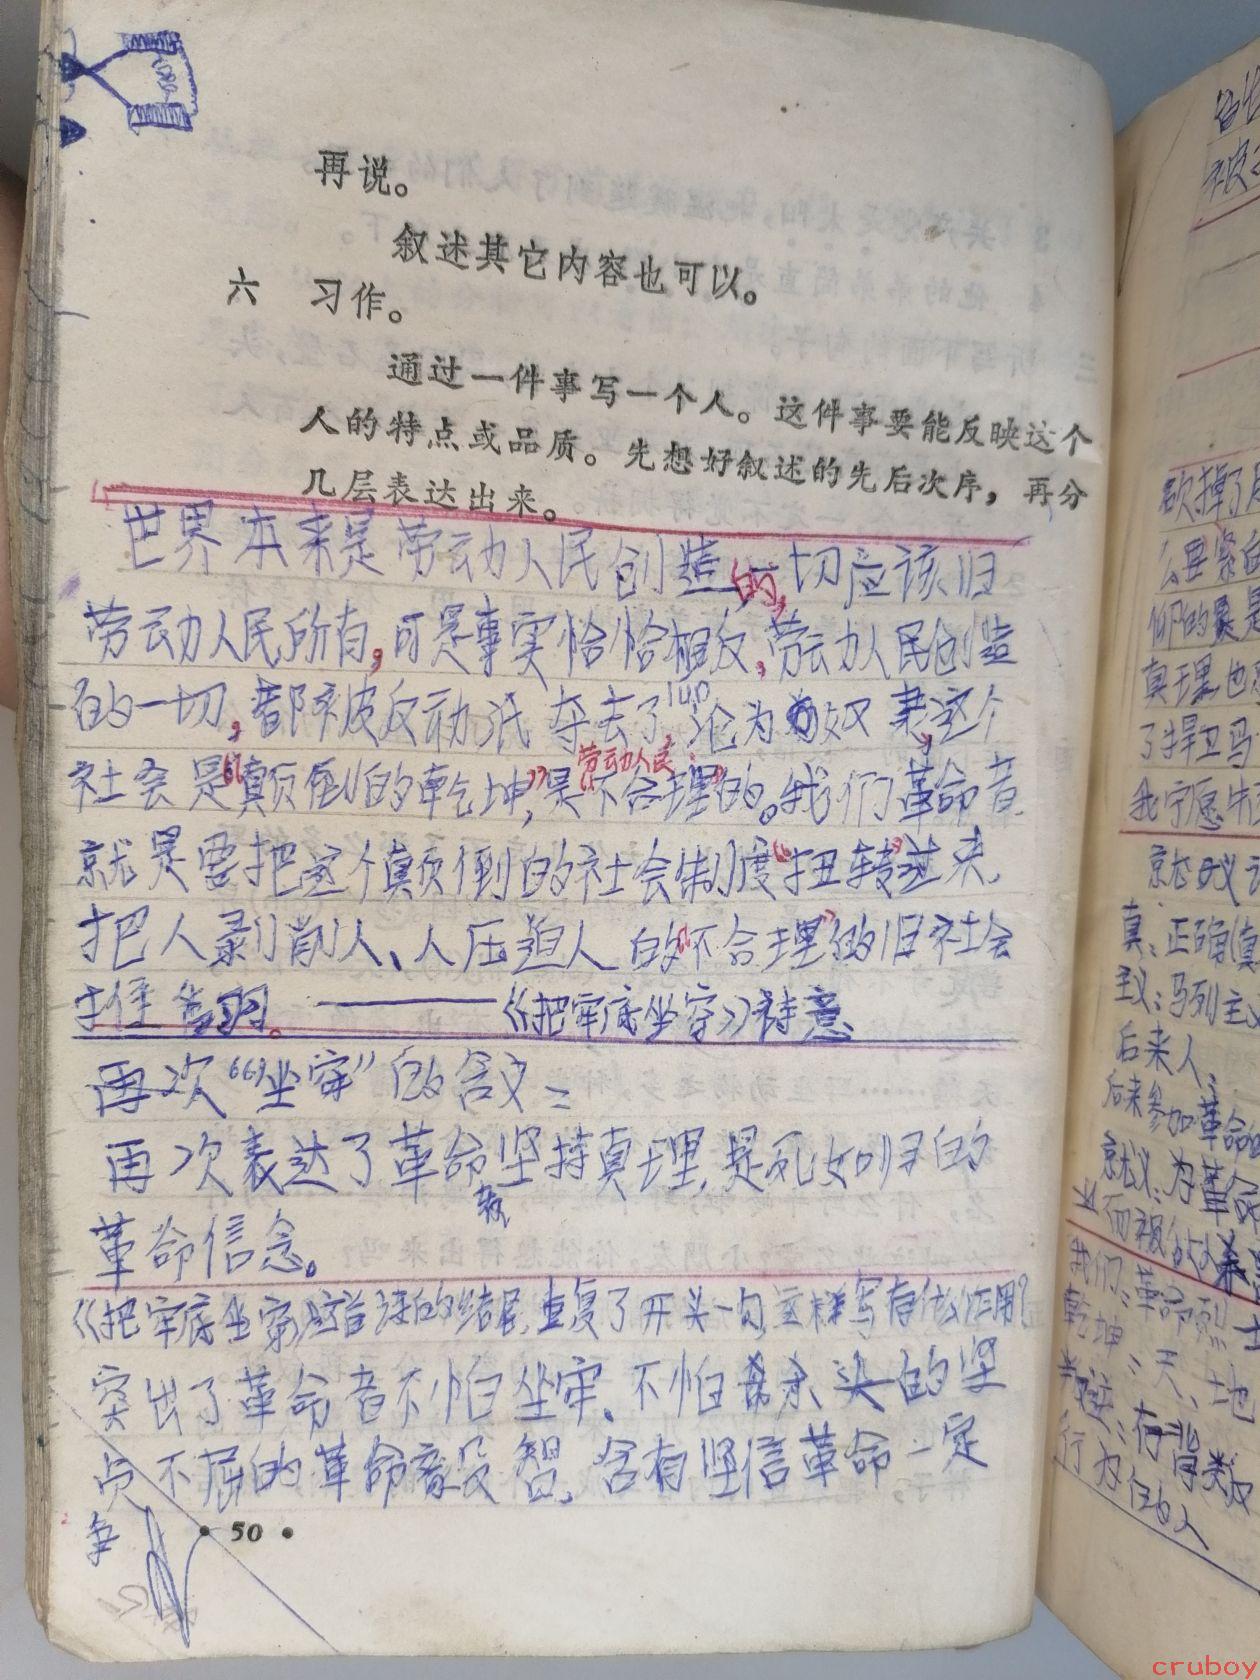 再说。
叙述其它内容也可以。
六 习作。
通过一件事写一个人。这件事要能反映这个
人的特点或品质。先想好叙述的先后次序，再分
几层表达出来。
世界本来是劳动人民创造的，一切应该归
劳动人民所有，可是事实恰恰相反，劳动人民创造
的一切，都被反动派夺去了，沦为奴隶，这个
劳动人民
社会是“颠倒的乾坤”，是“不合理”的。我们革命者
就是要把这个颠倒的社会制度“扭转”过来，
把人剥削人、人压迫人的“不合理”的旧社会
《把牢底坐穿》诗意
再次“坐牢”的含义：
再次表达了革命坚持真理，是死如归的
革命信念。
《把牢底坐穿》这首诗的结尾，重复了开头一句，这样写有什么作用？
突出了革命者不怕坐牢、不怕杀头的坚
贞不屈的革命，含有坚信革命一定
• 50 •
欲掉了
真：正确（真
主义：马列主义
后来人：
后来参加革命的
就义：为革命
我们：革命烈士
乾坤：天、地
cruboy